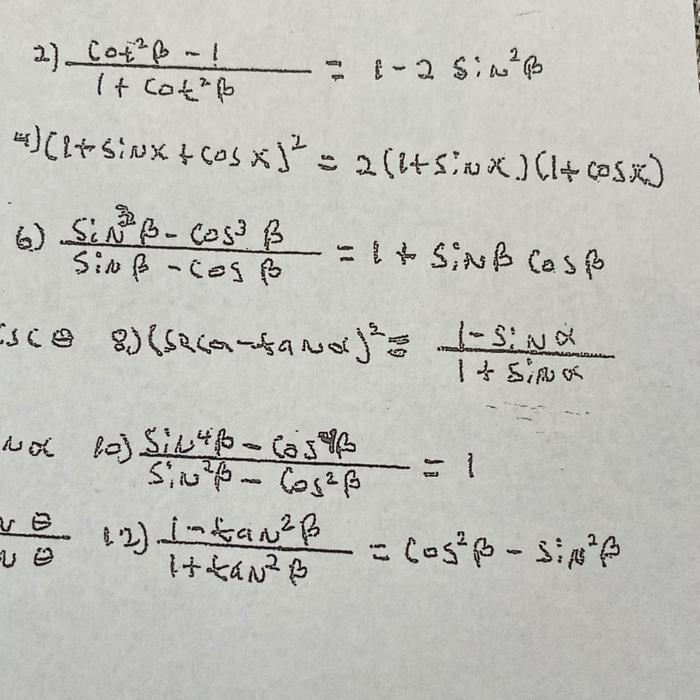 2) (cot²β - 1)/(1 + cot²β) = 1 - 2 sin²β
4) (1 + sinx + cosx)² = 2(1 + sinx)(1 + cosx)
6) (sin³β - cos³β)/(sinβ - cosβ) = 1 + sinβ cosβ
csc θ 8) (secα - tanα)² = (1 - sinα)/(1 + sinα)
nα 10) (sin⁴β - cos⁴β)/(sin²β - cos²β) = 1
θ/θ 12) (1 - tan²β)/(1 + tan²β) = cos²β - sin²β